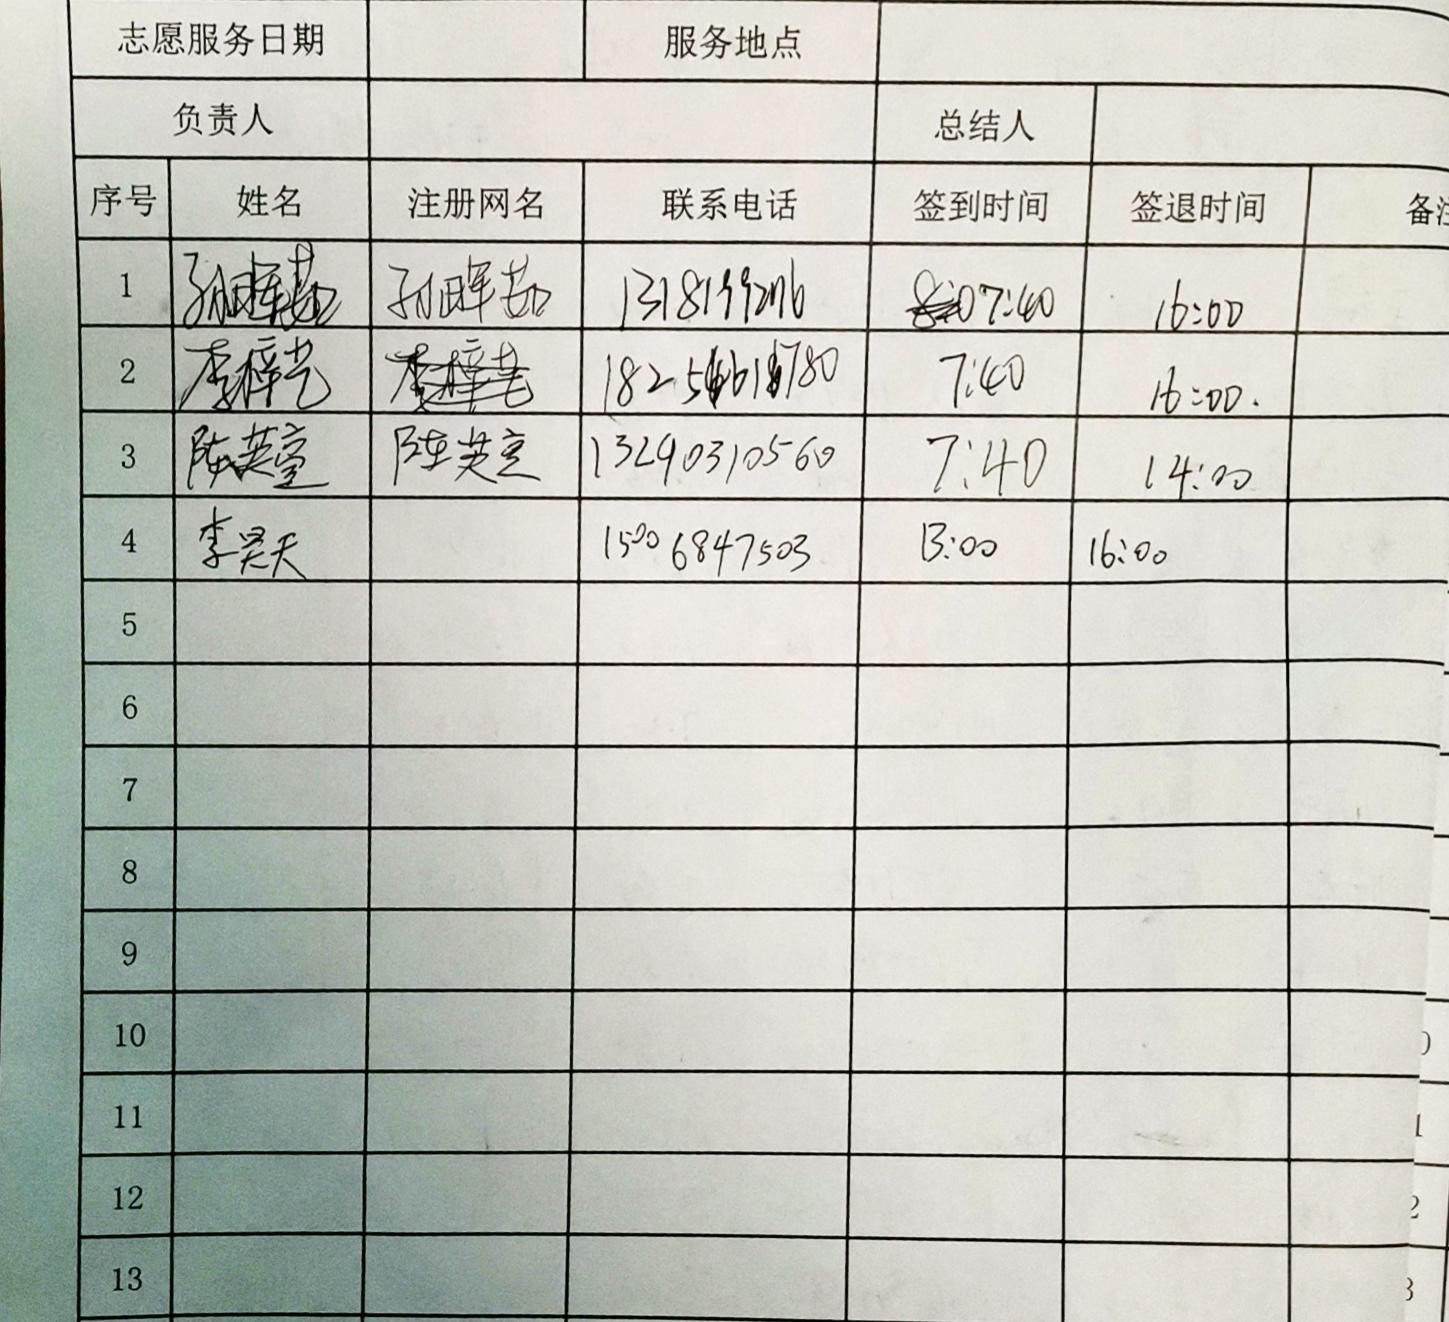 志愿服务日期 服务地点
负责人 总结人
序号 姓名 注册网名 联系电话 签到时间 签退时间 备注
1 孙晖茹 孙晖茹 7:40 16:00
2 李梓艺 7:40 16:00.
3 陈英 陈英 13290310560 7:40 14:00
4 李昊天 15006847503 13:00 16:00
5
6
7
8
9
10
11
12
13